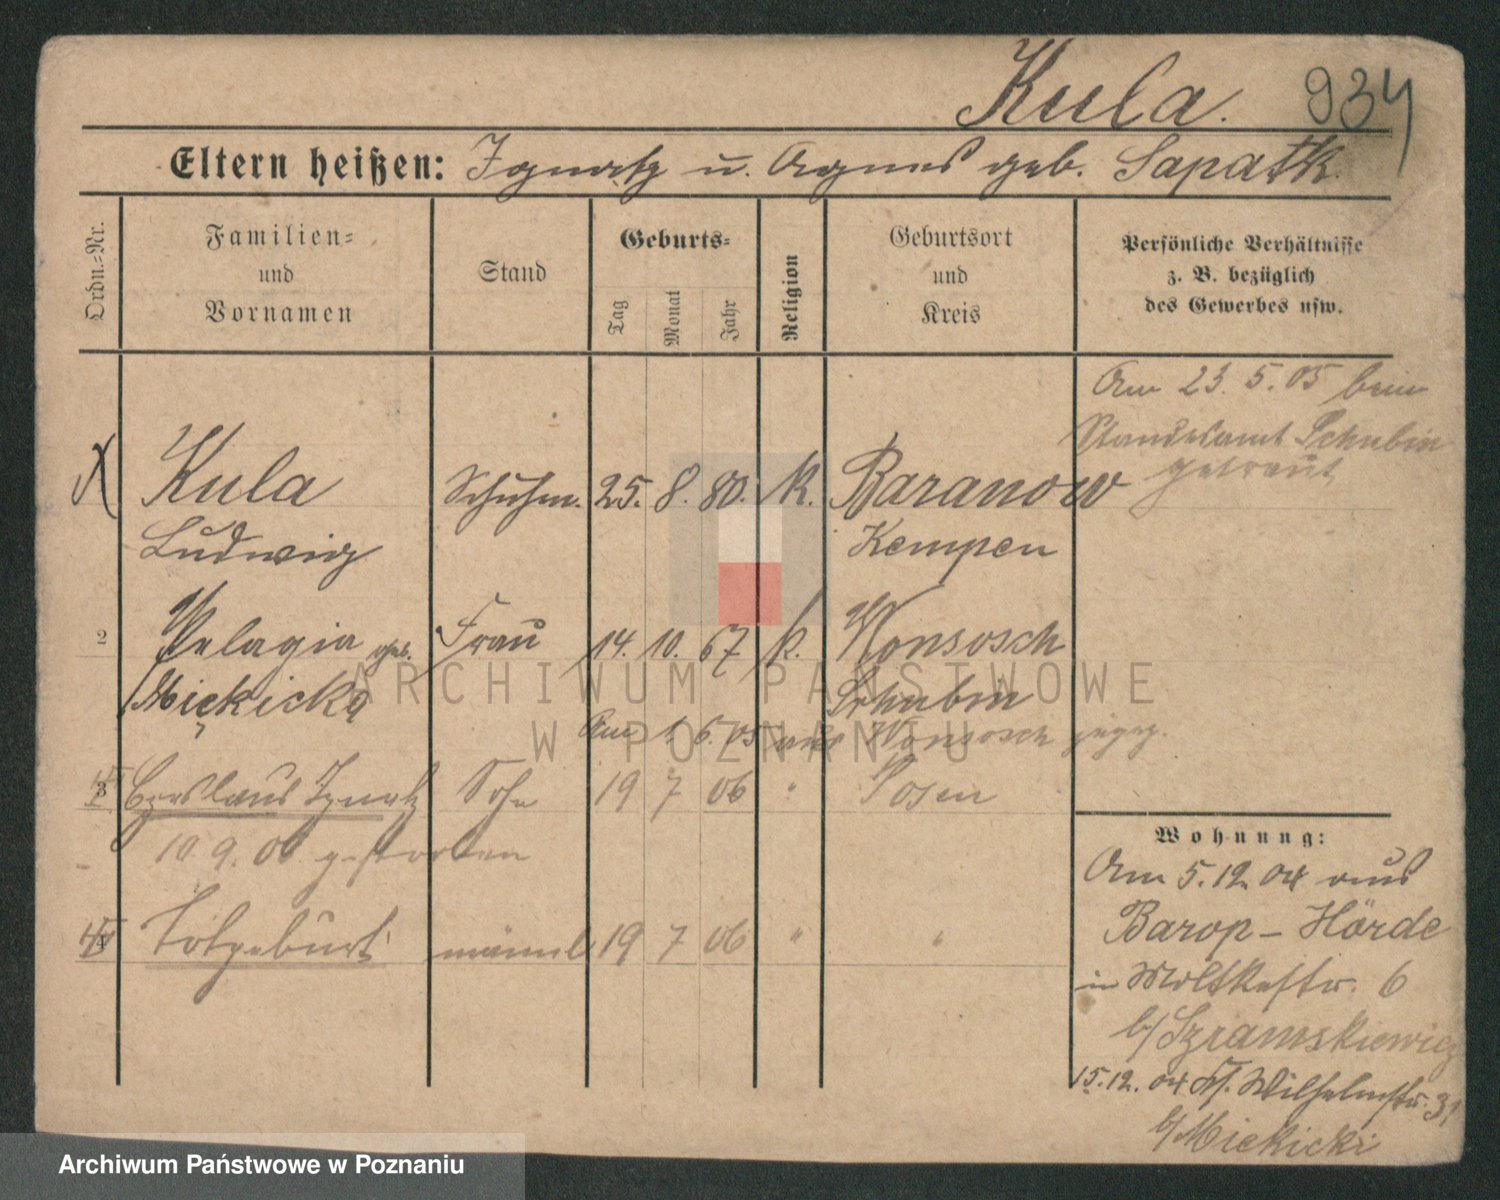 Kula. 934
Eltern heißen: Ignatz u. Agnes geb. Sapatk.
Ordn.-Nr.
Familien-
und
Vornamen
Stand
Geburts-
Tag
Monat
Jahr
Religion
Geburtsort
und
Kreis
Persönliche Verhältnisse
z. B. bezüglich
des Gewerbes usw.
Am 23. 5. 05 beim
Standesamt Schubin
getraut
Kula Schuhm. 25. 8. 80. K. Baranow
Ludwig Kempen
2 Pelagia geb. Frau 14. 10. 67 k. Wonsosch
Miękicka Schubin
Am 1. 6. 05 aus Wonsosch zugez.
3 Czeslaus Ignatz Sohn 19 7 06 " Posen
10. 9. 06 gestorben
4 Totgeburt männl. 19 7 06 " "
Wohnung:
Am 5. 12. 04 aus
Barop - Hörde
in Moltkestr. 6
b/Szramskiewicz
15. 12. 04 Kr. Wilhelmstr. 31
b/Miekicki
ARCHIWUM PAŃSTWOWE
W POZNANIU
Archiwum Państwowe w Poznaniu